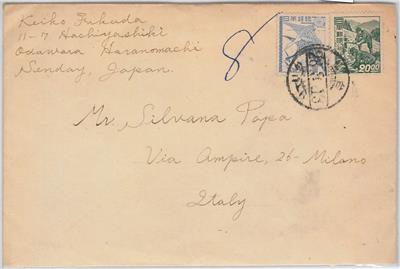 Keiko Fukuda
11-7 Hachiyashiki
Odawara Haranomachi
Senday, Japan.
8
日本郵便
20.00
Mr. Silvana Papa
Via Ampire, 26 - Milano
Italy